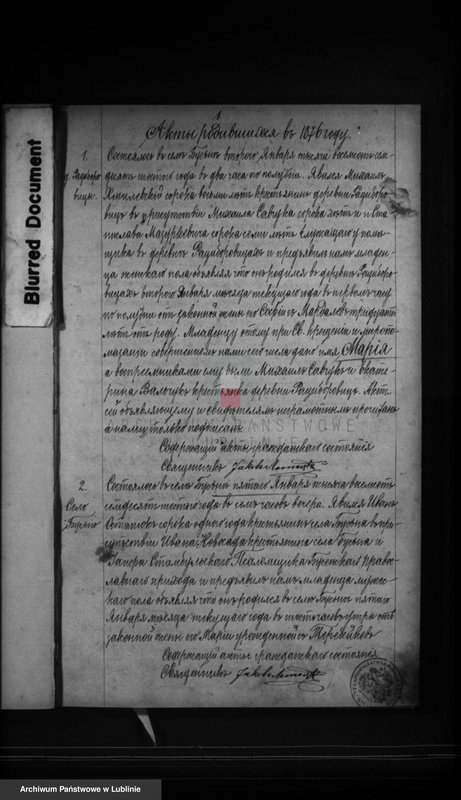 1
Акты родившихся въ 1876 году.
1.
д. Рациборо-
вицы.
Состоялось въ селѣ Бусьнѣ второго Января тысяча восемьсотъ семь-
десятъ шестого года въ два часа по полудни. Явился Михаилъ
сорока восьми лѣтъ крестьянинъ деревни Рациборо-
вицъ въ присутствіи Михаила Савчука сорока лѣтъ и Ста-
нислава сорока семи лѣтъ служащаго у помѣ-
щика въ деревнѣ Рациборовицахъ и предъявилъ намъ младен-
ца женскаго пола объявляя что онъ родился въ деревнѣ Рациборо-
вицахъ второго Января мѣсяца текущаго года въ первомъ часу
по полудни отъ законной жены его тридцати
лѣтъ отъ роду. Младенцу этому при Св. крещеніи и миропо-
мазаніи совершенномъ нами сего числа дано имя Марія
а воспріемниками ему были Михаилъ Савчукъ и Екате-
рина деревни Рациборовицъ. Актъ
сей объявляющему и свидѣтелямъ неграмотнымъ прочитанъ
а нами только подписанъ.
Содержащій акты гражданскаго состоянія
Священникъ
2.
Село
Бусьно
Состоялось въ селѣ Бусьнѣ пятаго Января тысяча восемьсотъ
семьдесятъ шестого года въ семь часовъ вечера. Явился Иванъ
сорока одного года крестьянинъ села Бусьна въ при-
сутствіи Ивана крестьянина села Бусьна и
Псаломщика Бусенскаго Право-
славнаго прихода и предъявилъ намъ младенца мужес-
каго пола объявляя что онъ родился въ селѣ Бусьнѣ пятаго
Января мѣсяца текущаго года въ шесть часовъ утра отъ
законной жены его Маріи урожденной
Содержащій акты гражданскаго состоянія
Священникъ
Blurred Document
ARCHIWUM PAŃSTWOWE
W LUBLINIE
Archiwum Państwowe w Lublinie